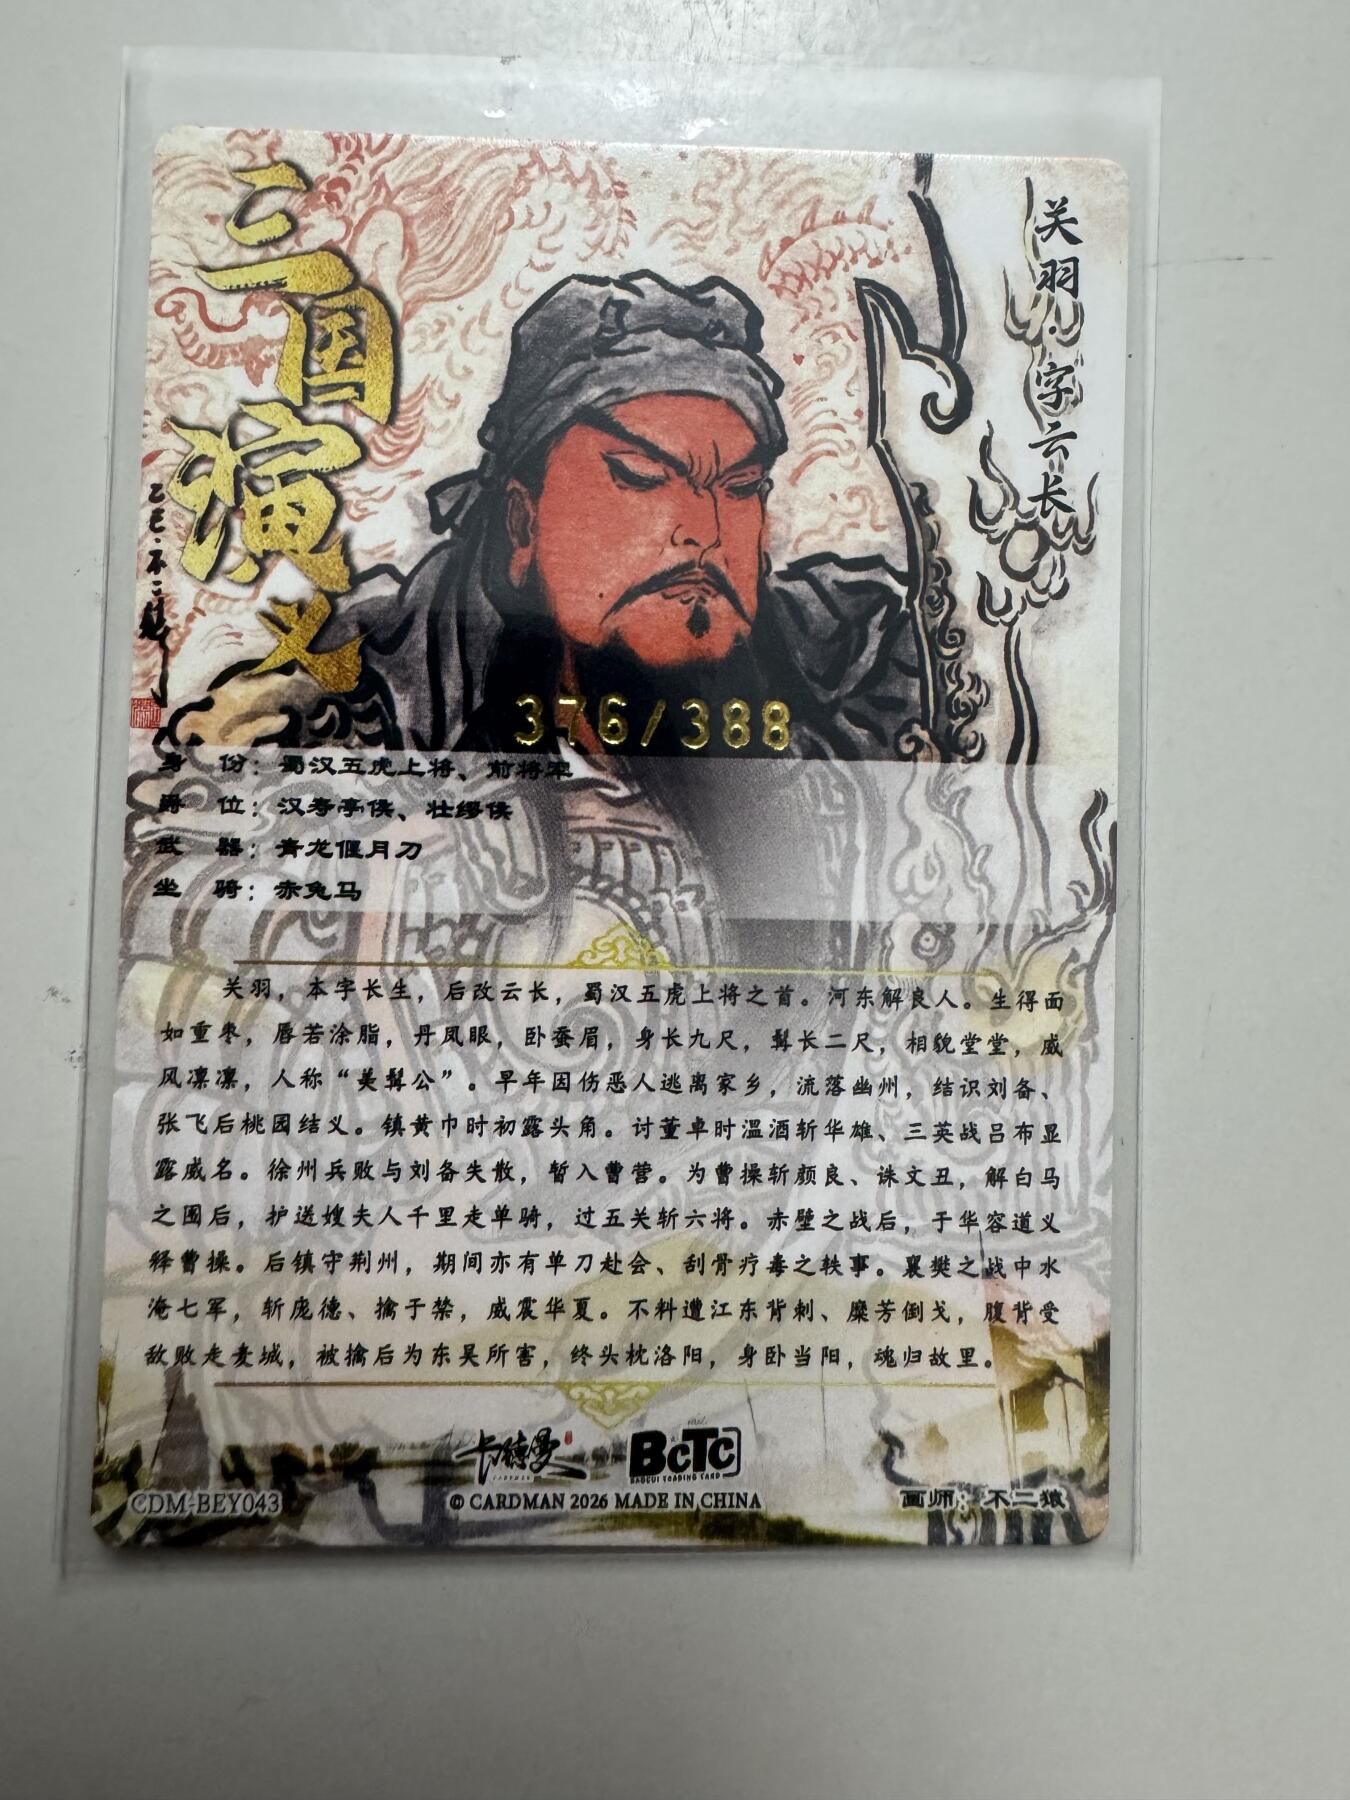 三国演义
关羽·字云长
乙巳·不二猿
376/388
身 份：蜀汉五虎上将、前将军
爵 位：汉寿亭侯、壮缪侯
武 器：青龙偃月刀
坐 骑：赤兔马
关羽，本字长生，后改云长，蜀汉五虎上将之首。河东解良人。生得面
如重枣，唇若涂脂，丹凤眼，卧蚕眉，身长九尺，髯长二尺，相貌堂堂，威
风凛凛，人称“美髯公”。早年因伤恶人逃离家乡，流落幽州，结识刘备、
张飞后桃园结义。镇黄巾时初露头角。讨董卓时温酒斩华雄、三英战吕布显
露威名。徐州兵败与刘备失散，暂入曹营。为曹操斩颜良、诛文丑，解白马
之围后，护送嫂夫人千里走单骑，过五关斩六将。赤壁之战后，于华容道义
释曹操。后镇守荆州，期间亦有单刀赴会、刮骨疗毒之轶事。襄樊之战中水
淹七军，斩庞德、擒于禁，威震华夏。不料遭江东背刺、糜芳倒戈，腹背受
敌败走麦城，被擒后为东吴所害，终头枕洛阳，身卧当阳，魂归故里。
卡德曼
CARDMAN
BCTC
BAOCUI TRADING CARD
CDM-BEY043
© CARDMAN 2026 MADE IN CHINA
画师：不二猿